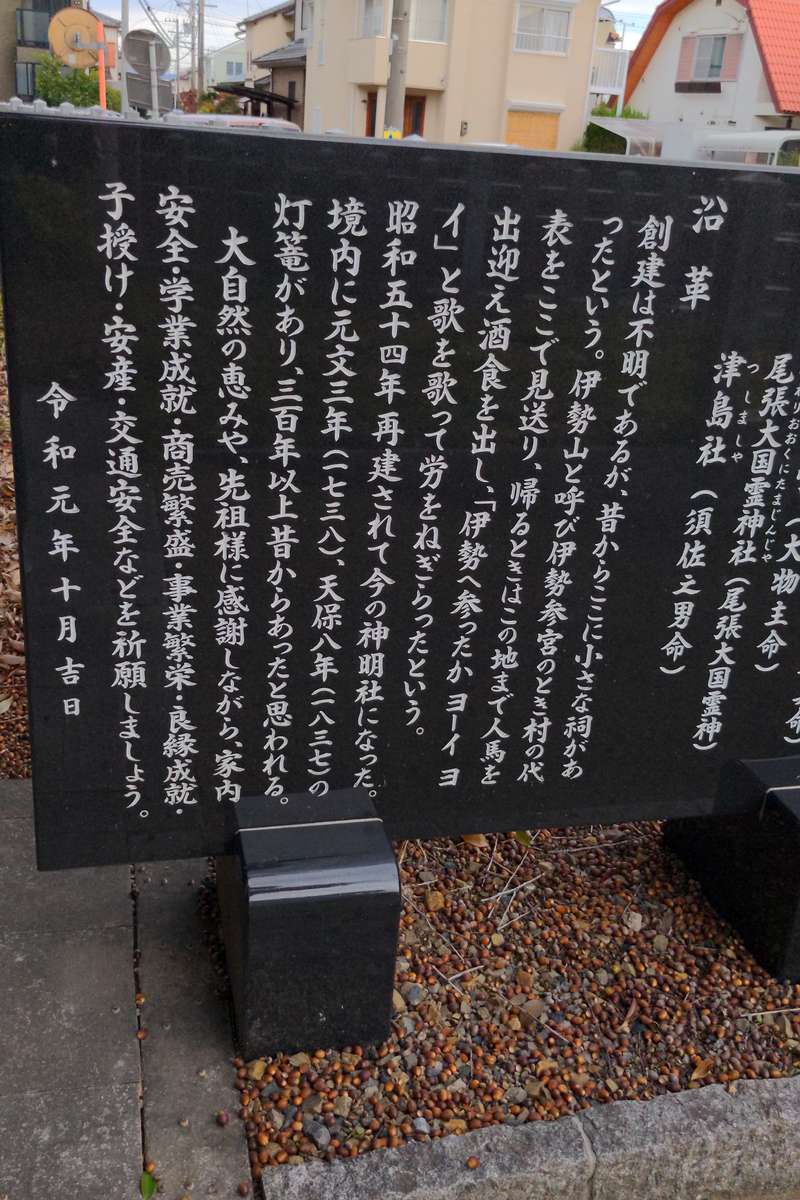 (大物主命)
尾張大国霊神社(尾張大国霊神)
おおくにたまじんじゃ
津島社(須佐之男命)
つしましゃ
沿革
創建は不明であるが、昔からここに小さな祠があ
ったという。伊勢山と呼び伊勢参宮のとき村の代
表をここで見送り、帰るときはこの地まで人馬を
出迎え酒食を出し、「伊勢へ参ったか ヨーイ ヨ
イ」と歌を歌って労をねぎらったという。
昭和五十四年再建されて今の神明社になった。
境内に元文三年(一七三八)、天保八年(一八三七)の
灯篭があり、三百年以上昔からあったと思われる。
大自然の恵みや、先祖様に感謝しながら、家内
安全・学業成就・商売繁盛・事業繁栄・良縁成就・
子授け・安産・交通安全などを祈願しましょう。
令和元年十月吉日